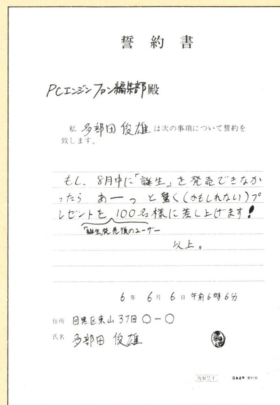 誓約書
PCエンジンファン編集部殿
私 多部田俊雄は次の事項について誓約を
致します。
もし、8月中に「誕生」を発売できなか
ったら あーっと驚く(かもしれない)プ
レゼントを 100名様に差し上げます!
「誕生」発売後のユーザー
以上。
6年 6月 6日 午前6時6分
住所 目黒区東山3丁目○-○
氏名 多部田 俊雄